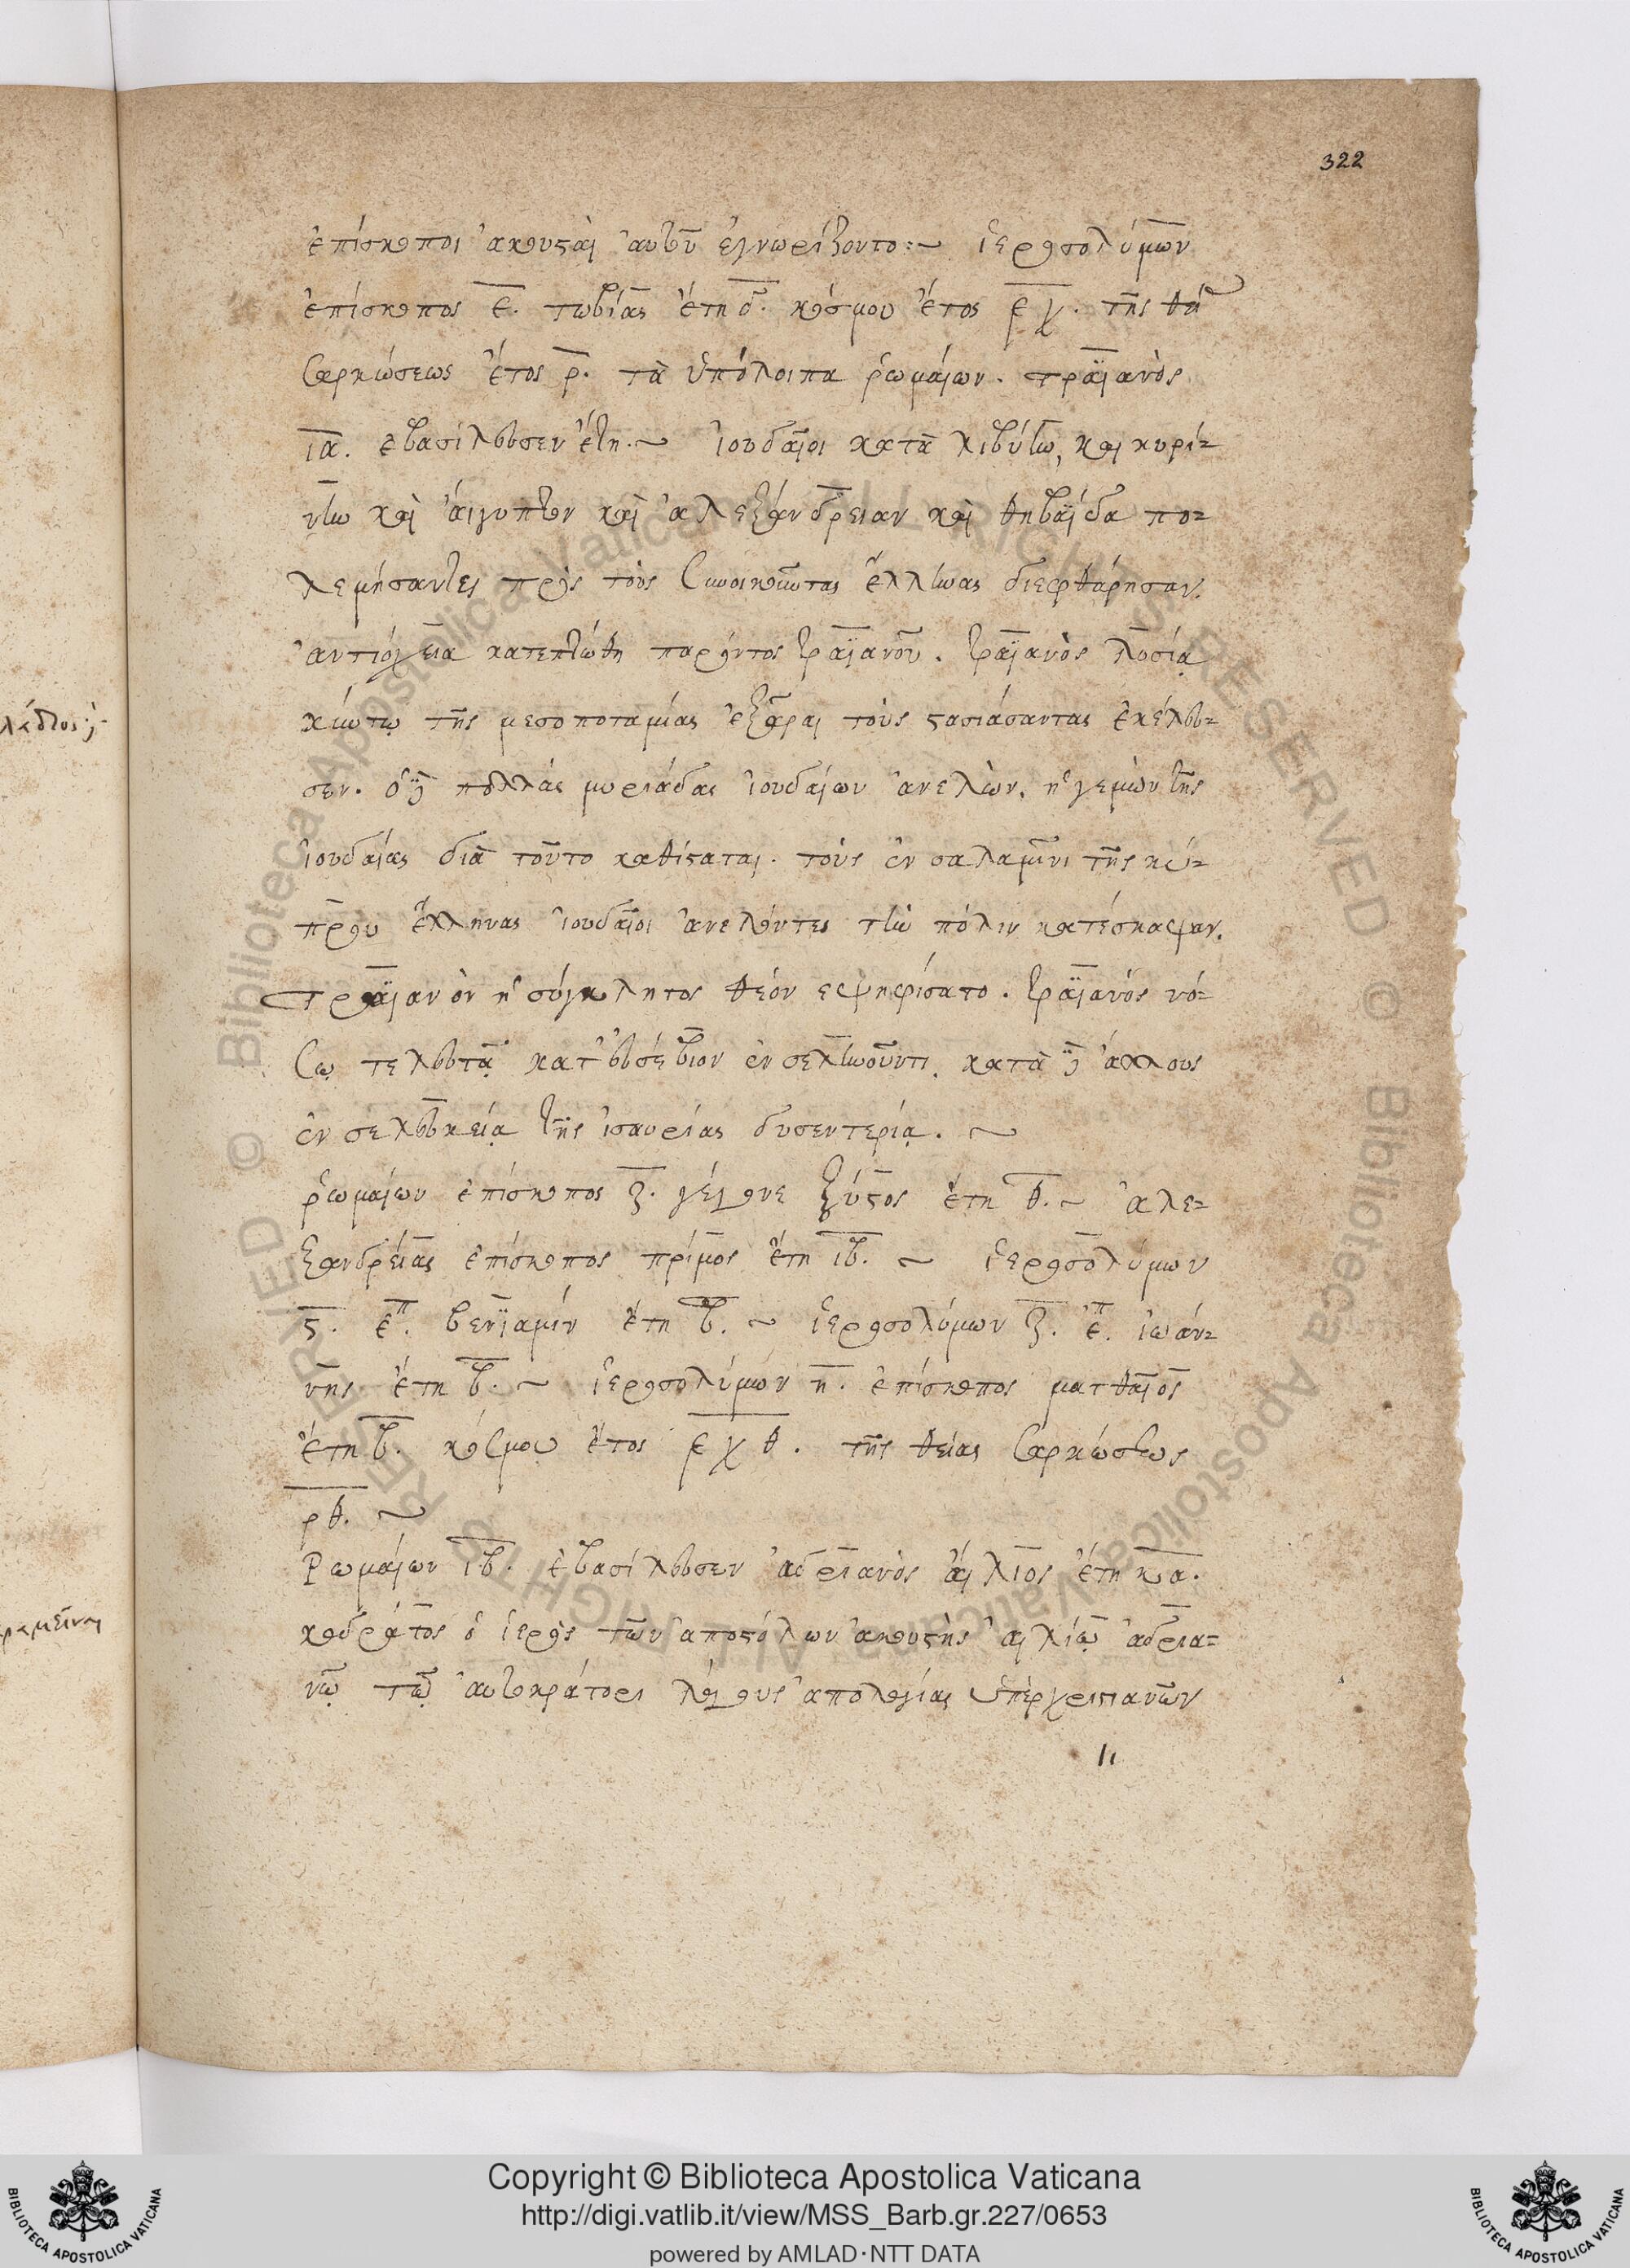 322
ἐπίσκοποι ἀκουσταὶ αὐτοῦ ἐγνωρίζοντο:~ ἱεροσολύμων
ἐπίσκοπος ε̅. τωβίας ἔτη δ̅. κόσμου ἔτος ͵εχ. τῆς θεί
σαρκώσεως ἔτος ρ̅. τὰ ὑπόλοιπα ῥωμαίων. τραϊανὸς
ια̅. ἐβασίλευσεν ἔτη.~ ἰουδαῖοι κατὰ λιβύην, καὶ κυρί-
νην καὶ αἴγυπτον καὶ ἀλεξάνδρειαν καὶ θηβαΐδα πο-
λεμήσαντες πρὸς τοὺς συνοικοῦντας ἕλληνας διεφθάρησαν.
ἀντιόχεια κατεπτώθη παρόντος τραϊανοῦ. τραϊανὸς λυσίᾳ
κύντῳ τῆς μεσοποταμίας ἐξᾶραι τοὺς στασιάσαντας ἐκέλευ-
σεν. ὁ δὲ πολλὰς μυριάδας ἰουδαίων ἀνελὼν. ἡγεμὼν τῆς
ἰουδαίας διὰ τοῦτο καθίσταται. τοὺς ἐν σαλαμῖνι τῆς κύ-
πρου ἕλληνας ἰουδαῖοι ἀνελόντες τὴν πόλιν κατέσκαψαν.
τραϊανὸν ἡ σύγκλητος θεόν εψηφίσατο. τραϊανός νό-
σῳ τελευτᾷ κατ' ευσέβιον ἐν σελινοῦντι. κατὰ δὲ ἄλλους
ἐν σελευκείᾳ τῆς ἰσαυρίας δυσεντερίᾳ. ~
ῥωμαίων ἐπίσκοπος ζ̅. γέγονε ξύστος ἔτη θ̅.~ ἀλε-
ξανδρείας ἐπίσκοπος πρίμος ἔτη ιβ̅. ~ ἱεροσολύμων
ϛ̅. ἐπ. βενϊαμίν ἔτη β̅. ~ ἱεροσολύμων ζ̅. ἐπ. ἰωάν-
νης ἔτη β̅. ~ ἱεροσολύμων η̅. ἐπίσκοπος ματθαῖος
ἔτη β̅. κόσμου ἔτος ͵εχθ. τῆς θείας σαρκώσεως
ρθ̅. ~
Ρωμαίων ιβ̅. ἐβασίλευσεν ἀδριανὸς αἴλιος ἔτη κα.
κοδράτος ὁ ἱερὸς τῶν ἀποστόλων ἀκουστὴς αἰλίῳ ἀδρια-
νῷ τῷ αὐτοκράτορι λόγους ἀπολογίας ὑπὲρ χριστιανῶν
Copyright © Biblioteca Apostolica Vaticana
http://digi.vatlib.it/view/MSS_Barb.gr.227/0653
powered by AMLAD·NTT DATA
BIBLIOTECA APOSTOLICA VATICANA
BIBLIOTECA APOSTOLICA VATICANA